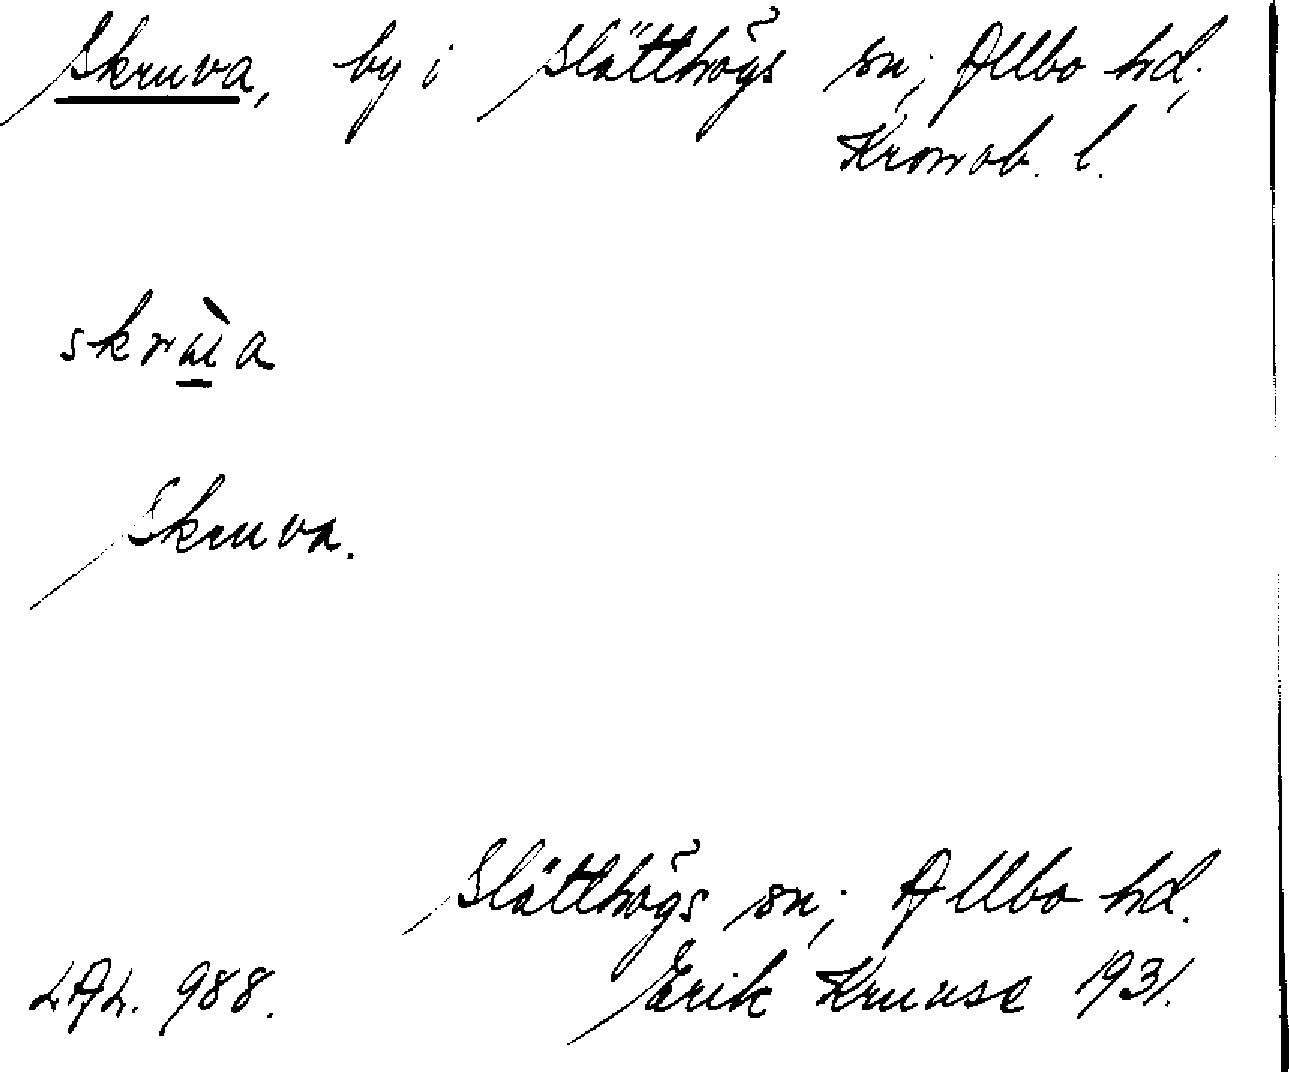 Skruva, by i Slätthögs sn; Allbo hd.,
Kronob. l.
skrùa
Skruva.
Slätthögs sn; Allbo hd.
LAL. 988. Erik Kruuse 1931.